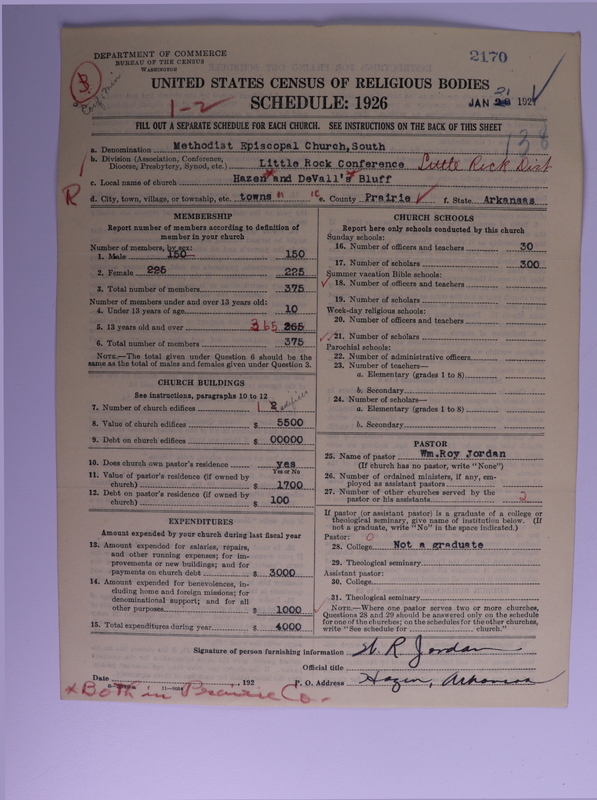 DEPARTMENT OF COMMERCE
BUREAU OF THE CENSUS
WASHINGTON
2170
UNITED STATES CENSUS OF RELIGIOUS BODIES
1-2
SCHEDULE: 1926
JAN 28 1927
21
FILL OUT A SEPARATE SCHEDULE FOR EACH CHURCH. SEE INSTRUCTIONS ON THE BACK OF THIS SHEET
138
a. Denomination Methodist Episcopal Church,South
b. Division (Association, Conference, Diocese, Presbytery, Synod, etc.) Little Rock Conference Little Rock Dist
c. Local name of church Hazen and DeVall's Bluff
R
d. City, town, village, or township, etc. towns e. County Prairie f. State Arkansas
MEMBERSHIP
Report number of members according to definition of member in your church
Number of members, by sex:
1. Male 150 150
2. Female 225 225
3. Total number of members 375
Number of members under and over 13 years old:
4. Under 13 years of age 10
5. 13 years old and over 365 265
6. Total number of members 375
NOTE.—The total given under Question 6 should be the same as the total of males and females given under Question 3.
CHURCH BUILDINGS
See instructions, paragraphs 10 to 12
7. Number of church edifices 1 2 edifices
8. Value of church edifices $ 5500
9. Debt on church edifices $ 00000
10. Does church own pastor's residence yes
Yes or No
11. Value of pastor's residence (if owned by church) $ 1700
12. Debt on pastor's residence (if owned by church) $ 100
EXPENDITURES
Amount expended by your church during last fiscal year
13. Amount expended for salaries, repairs, and other running expenses; for improvements or new buildings; and for payments on church debt $ 3000
14. Amount expended for benevolences, including home and foreign missions; for denominational support; and for all other purposes $ 1000
15. Total expenditures during year $ 4000
CHURCH SCHOOLS
Report here only schools conducted by this church
Sunday schools:
16. Number of officers and teachers 30
17. Number of scholars 300
Summer vacation Bible schools:
18. Number of officers and teachers
19. Number of scholars
Week-day religious schools:
20. Number of officers and teachers
21. Number of scholars
Parochial schools:
22. Number of administrative officers
23. Number of teachers—
a. Elementary (grades 1 to 8)
b. Secondary
24. Number of scholars—
a. Elementary (grades 1 to 8)
b. Secondary
PASTOR
25. Name of pastor Wm.Roy Jordan
(If church has no pastor, write "None")
26. Number of ordained ministers, if any, employed as assistant pastors
27. Number of other churches served by the pastor or his assistants 2
If pastor (or assistant pastor) is a graduate of a college or theological seminary, give name of institution below. (If not a graduate, write "No" in the space indicated.)
Pastor: 0
28. College Not a graduate
29. Theological seminary
Assistant pastor:
30. College
31. Theological seminary
NOTE.—Where one pastor serves two or more churches, Questions 28 and 29 should be answered only on the schedule for one of the churches; on the schedules for the other churches, write "See schedule for church."
Signature of person furnishing information W. R. Jordan
Official title
Date , 192
P. O. Address Hazen, Arkansas
x Both in Prairie Co.